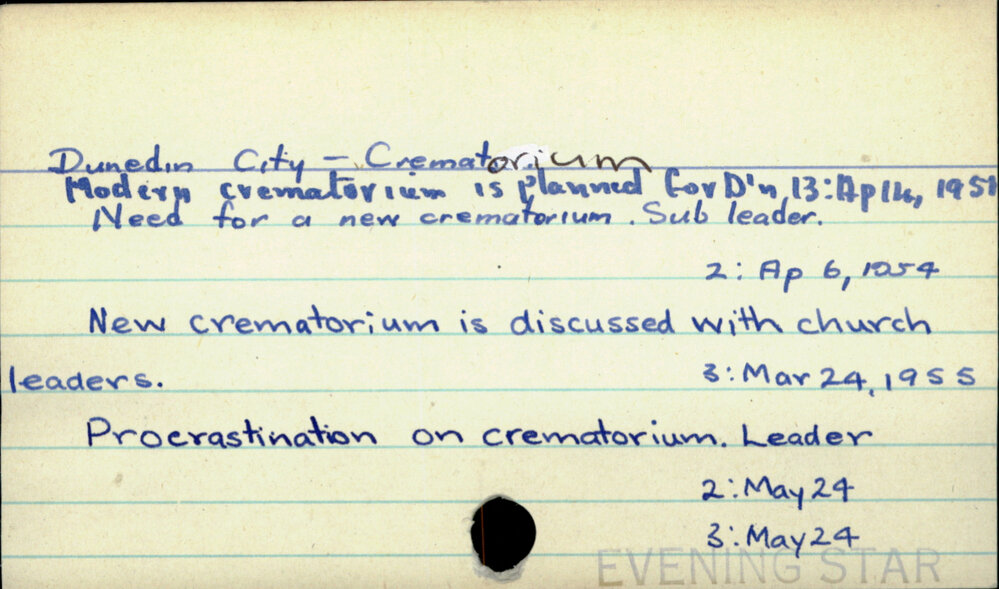 Dunedin City - Crematorium
Modern crematorium is planned for D'n, 13: Ap 14, 1951
Need for a new crematorium. Sub leader.
2: Ap 6, 1954
New crematorium is discussed with church
leaders. 3: Mar 24, 1955
Procrastination on crematorium. Leader
2: May 24
3: May 24
EVENING STAR